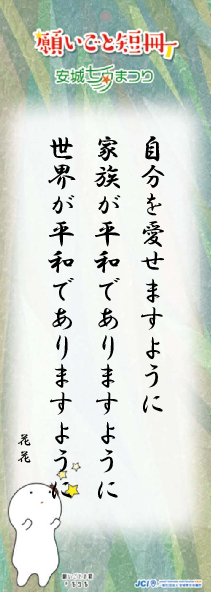 願いごと短冊
安城七夕まつり
自分を愛せますように
家族が平和でありますように
世界が平和でありますように
花花
JCI